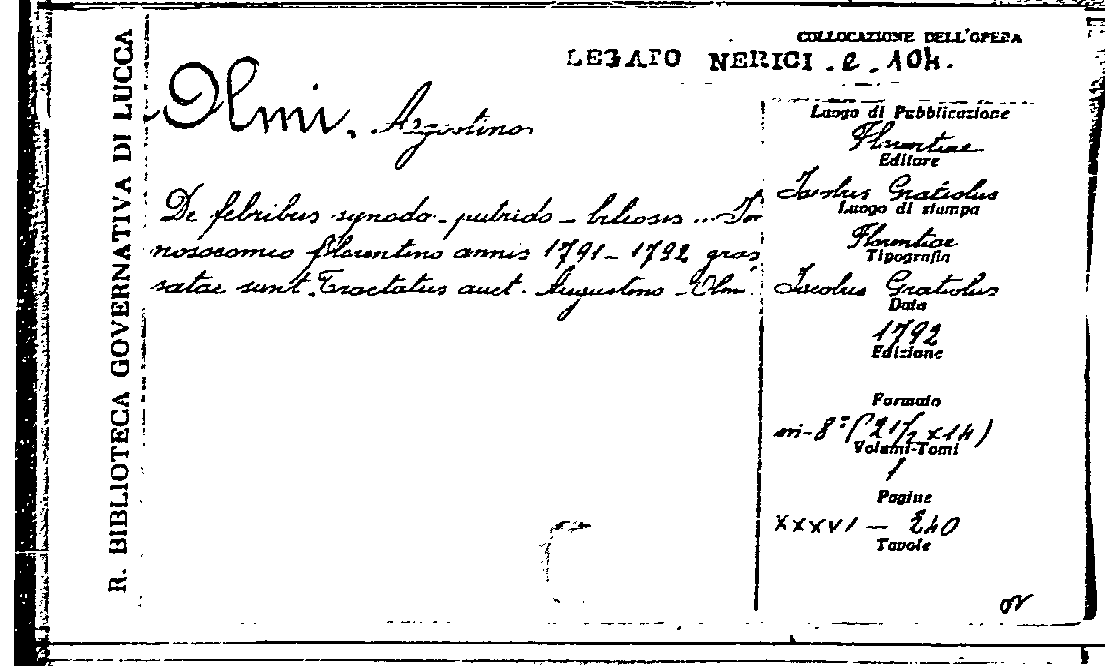 R. BIBLIOTECA GOVERNATIVA DI LUCCA
COLLOCAZIONE DELL'OPERA
LEGATO NERICI . e . 104.
Olmi. Agostino
De febribus synodo - putrido - biliosis ... In
nosocomio florentino annis 1791 - 1792 gras
satae sunt. Tractatus auct. Augustino Olmi.
Luogo di Pubblicazione
Florentiae
Editore
Iacobus Gratiolus
Luogo di stampa
Florentiae
Tipografia
Iacobus Gratiolus
Data
1792
Edizione
Formato
in-8° (21/2 x 14)
Volumi-Tomi
1
Pagine
XXXVI - 240
Tavole